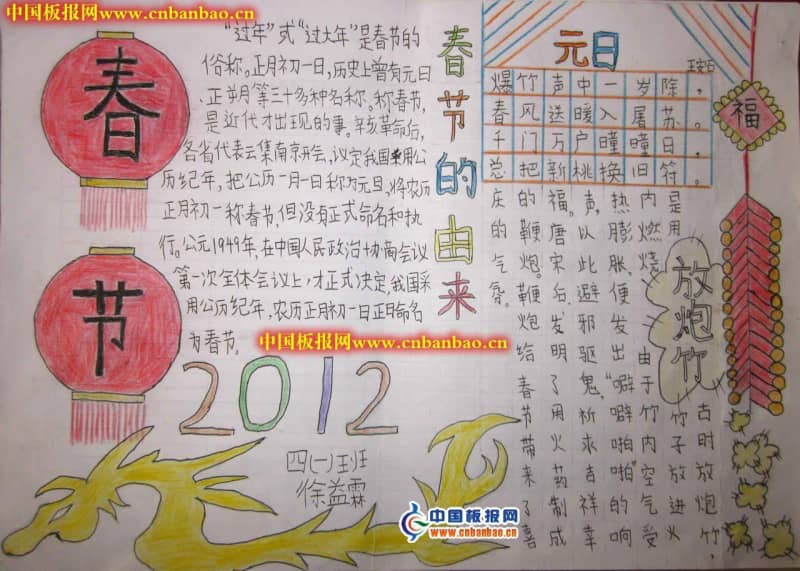 中国板报网www.cnbanbao.cn
春
节
春节的由来
“过年”或“过大年”是春节的
俗称。正月初一日,历史上曾有元日
、正月等三十多种名称。称春节,
是近代才出现的事。辛亥革命后,
各省代表云集南京开会,议定我国采用公
历纪年,把公历一月一日称为元旦,将农历
正月初一称春节,但没有正式命名和执
行。公元1949年,在中国人民政治协商会议
第一次全体会议上,才正式决定,我国采
用公历纪年,农历正月初一日正式命名
为春节。
中国板报网www.cnbanbao.cn
2012
四(一)班
徐益霖
元日
王安石
爆竹声中一岁除,
春风送暖入屠苏。
千门万户曈曈日,
总把新桃换旧符。
福
放炮竹
古时放炮竹,
是用竹子放进火
内燃烧。由于竹内空气受
热膨胀,便发出“噼噼啪啪”的响
声,以此避邪驱鬼,祈求吉祥幸
福。唐宋后,发明了用火药制成
的鞭炮。鞭炮给春节带来了喜
庆的气氛。
中国板报网
www.cnbanbao.cn